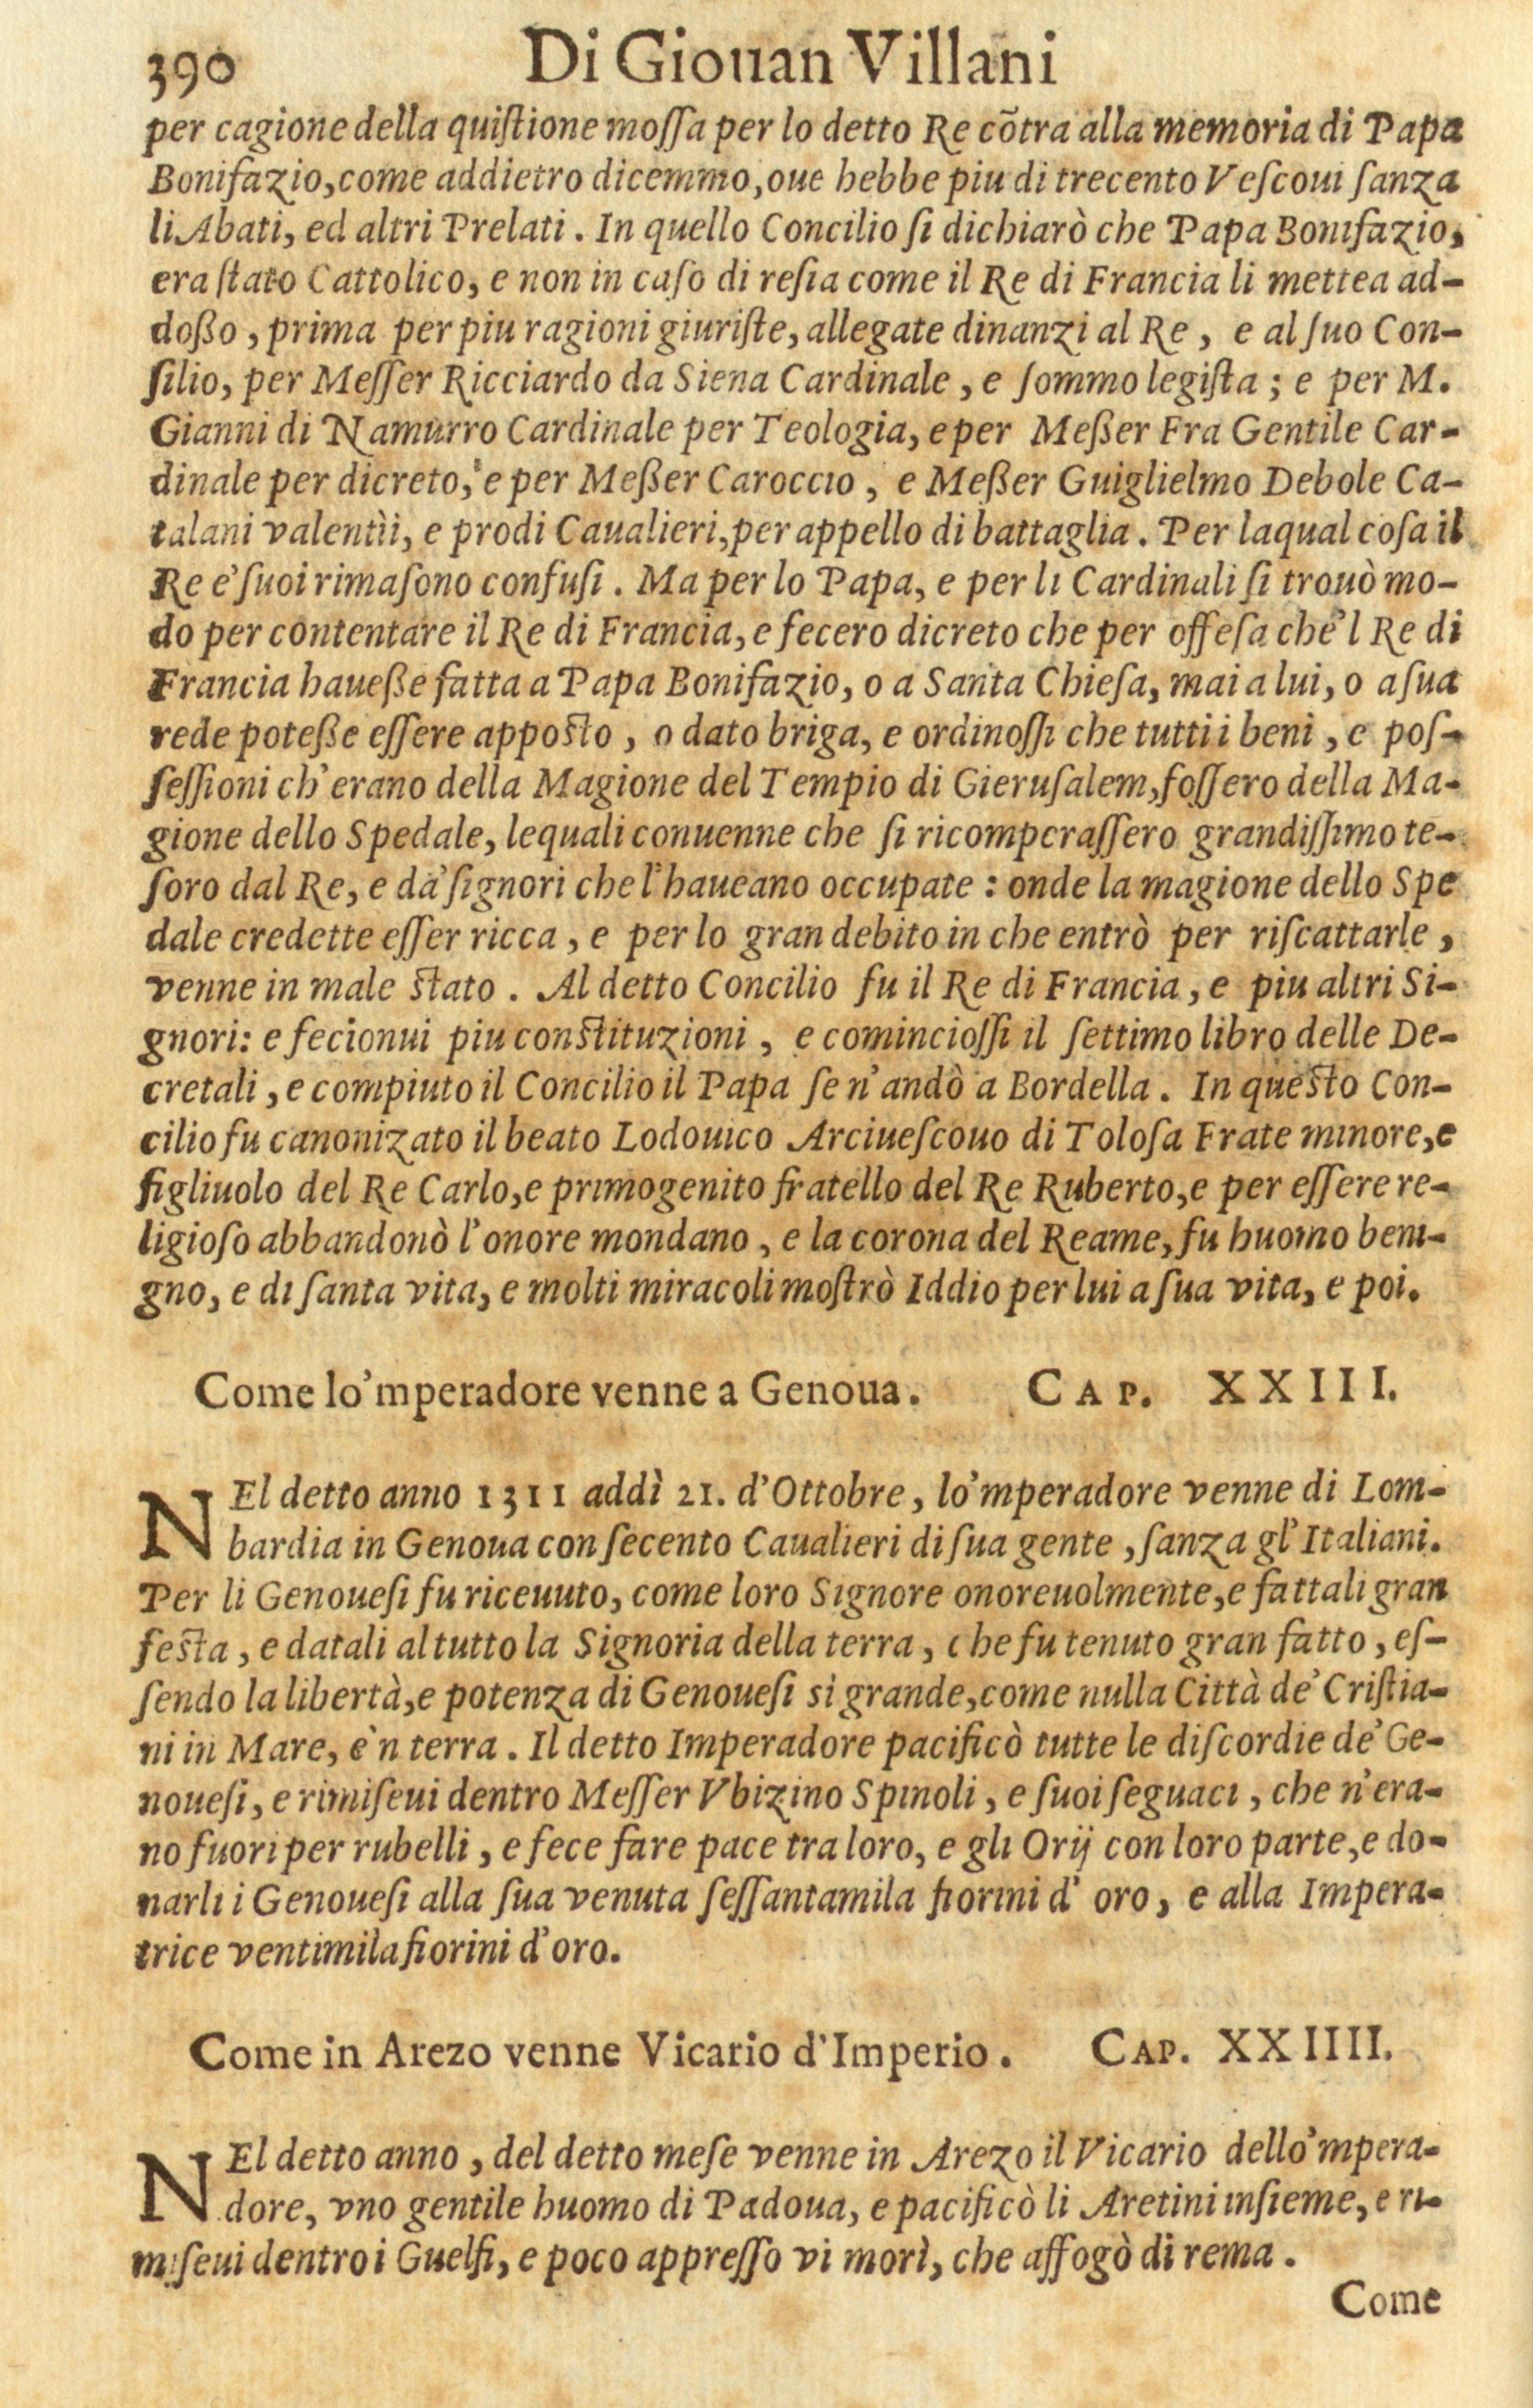 390 Di Giouan Villani
per cagione della quiſtione moſſa per lo detto Re cõtra alla memoria di Papa
Bonifazio, come addietro dicemmo, oue hebbe piu di trecento Veſcoui ſanza
li Abati, ed altri Prelati. In quello Concilio ſi dichiarò che Papa Bonifazio,
era ſtato Cattolico, e non in caſo di reſia come il Re di Francia li mettea ad-
doßo, prima per piu ragioni giuriſte, allegate dinanzi al Re, e al ſuo Con-
ſilio, per Meſſer Ricciardo da Siena Cardinale, e ſommo legiſta; e per M.
Gianni di Namurro Cardinale per Teologia, e per Meßer Fra Gentile Car-
dinale per dicreto, e per Meßer Caroccio, e Meßer Guiglielmo Debole Ca-
talani valentìi, e prodi Caualieri, per appello di battaglia. Per laqual coſa il
Re e' ſuoi rimaſono confuſi. Ma per lo Papa, e per li Cardinali ſi trouò mo-
do per contentare il Re di Francia, e fecero dicreto che per offeſa che'l Re di
Francia haueße fatta a Papa Bonifazio, o a Santa Chieſa, mai a lui, o a ſua
rede poteße eſſere appoſto, o dato briga, e ordinoſſi che tutti i beni, e poſ-
ſeſſioni ch'erano della Magione del Tempio di Gieruſalem, foſſero della Ma-
gione dello Spedale, lequali conuenne che ſi ricomperaſſero grandiſſimo te-
ſoro dal Re, e da' ſignori che l'haueano occupate: onde la magione dello Spe
dale credette eſſer ricca, e per lo gran debito in che entrò per riſcattarle,
venne in male ſtato. Al detto Concilio fu il Re di Francia, e piu altri Si-
gnori: e fecionui piu conſtituzioni, e comincioſſi il ſettimo libro delle De-
cretali, e compiuto il Concilio il Papa ſe n'andò a Bordella. In queſto Con-
cilio fu canonizato il beato Lodouico Arciueſcouo di Toloſa Frate minore, e
figliuolo del Re Carlo, e primogenito fratello del Re Ruberto, e per eſſere re-
ligioſo abbandonò l'onore mondano, e la corona del Reame, fu huomo beni-
gno, e di ſanta vita, e molti miracoli moſtrò Iddio per lui a ſua vita, e poi.
Come lo'mperadore venne a Genoua. CAP. XXIII.
NEl detto anno 1311 addì 21. d'Ottobre, lo'mperadore venne di Lom-
bardia in Genoua con ſecento Caualieri di ſua gente, ſanza gl'Italiani.
Per li Genoueſi fu riceuuto, come loro Signore onoreuolmente, e fattali gran
feſta, e datali al tutto la Signoria della terra, che fu tenuto gran fatto, eſ-
ſendo la libertà, e potenza di Genoueſi sì grande, come nulla Città de' Criſtia-
ni in Mare, e'n terra. Il detto Imperadore pacificò tutte le diſcordie de' Ge-
noueſi, e rimiſeui dentro Meſſer Vbizino Spinoli, e ſuoi ſeguaci, che n'era-
no fuori per rubelli, e fece fare pace tra loro, e gli Orij con loro parte, e do-
narli i Genoueſi alla ſua venuta ſeſſantamila fiorini d' oro, e alla Impera-
trice ventimila fiorini d'oro.
Come in Arezo venne Vicario d'Imperio. CAP. XXIIII.
NEl detto anno, del detto meſe venne in Arezo il Vicario dello'mpera-
dore, vno gentile huomo di Padoua, e pacificò li Aretini inſieme, e ri-
miſeui dentro i Guelfi, e poco appreſſo vi morì, che affogò di rema.
Come